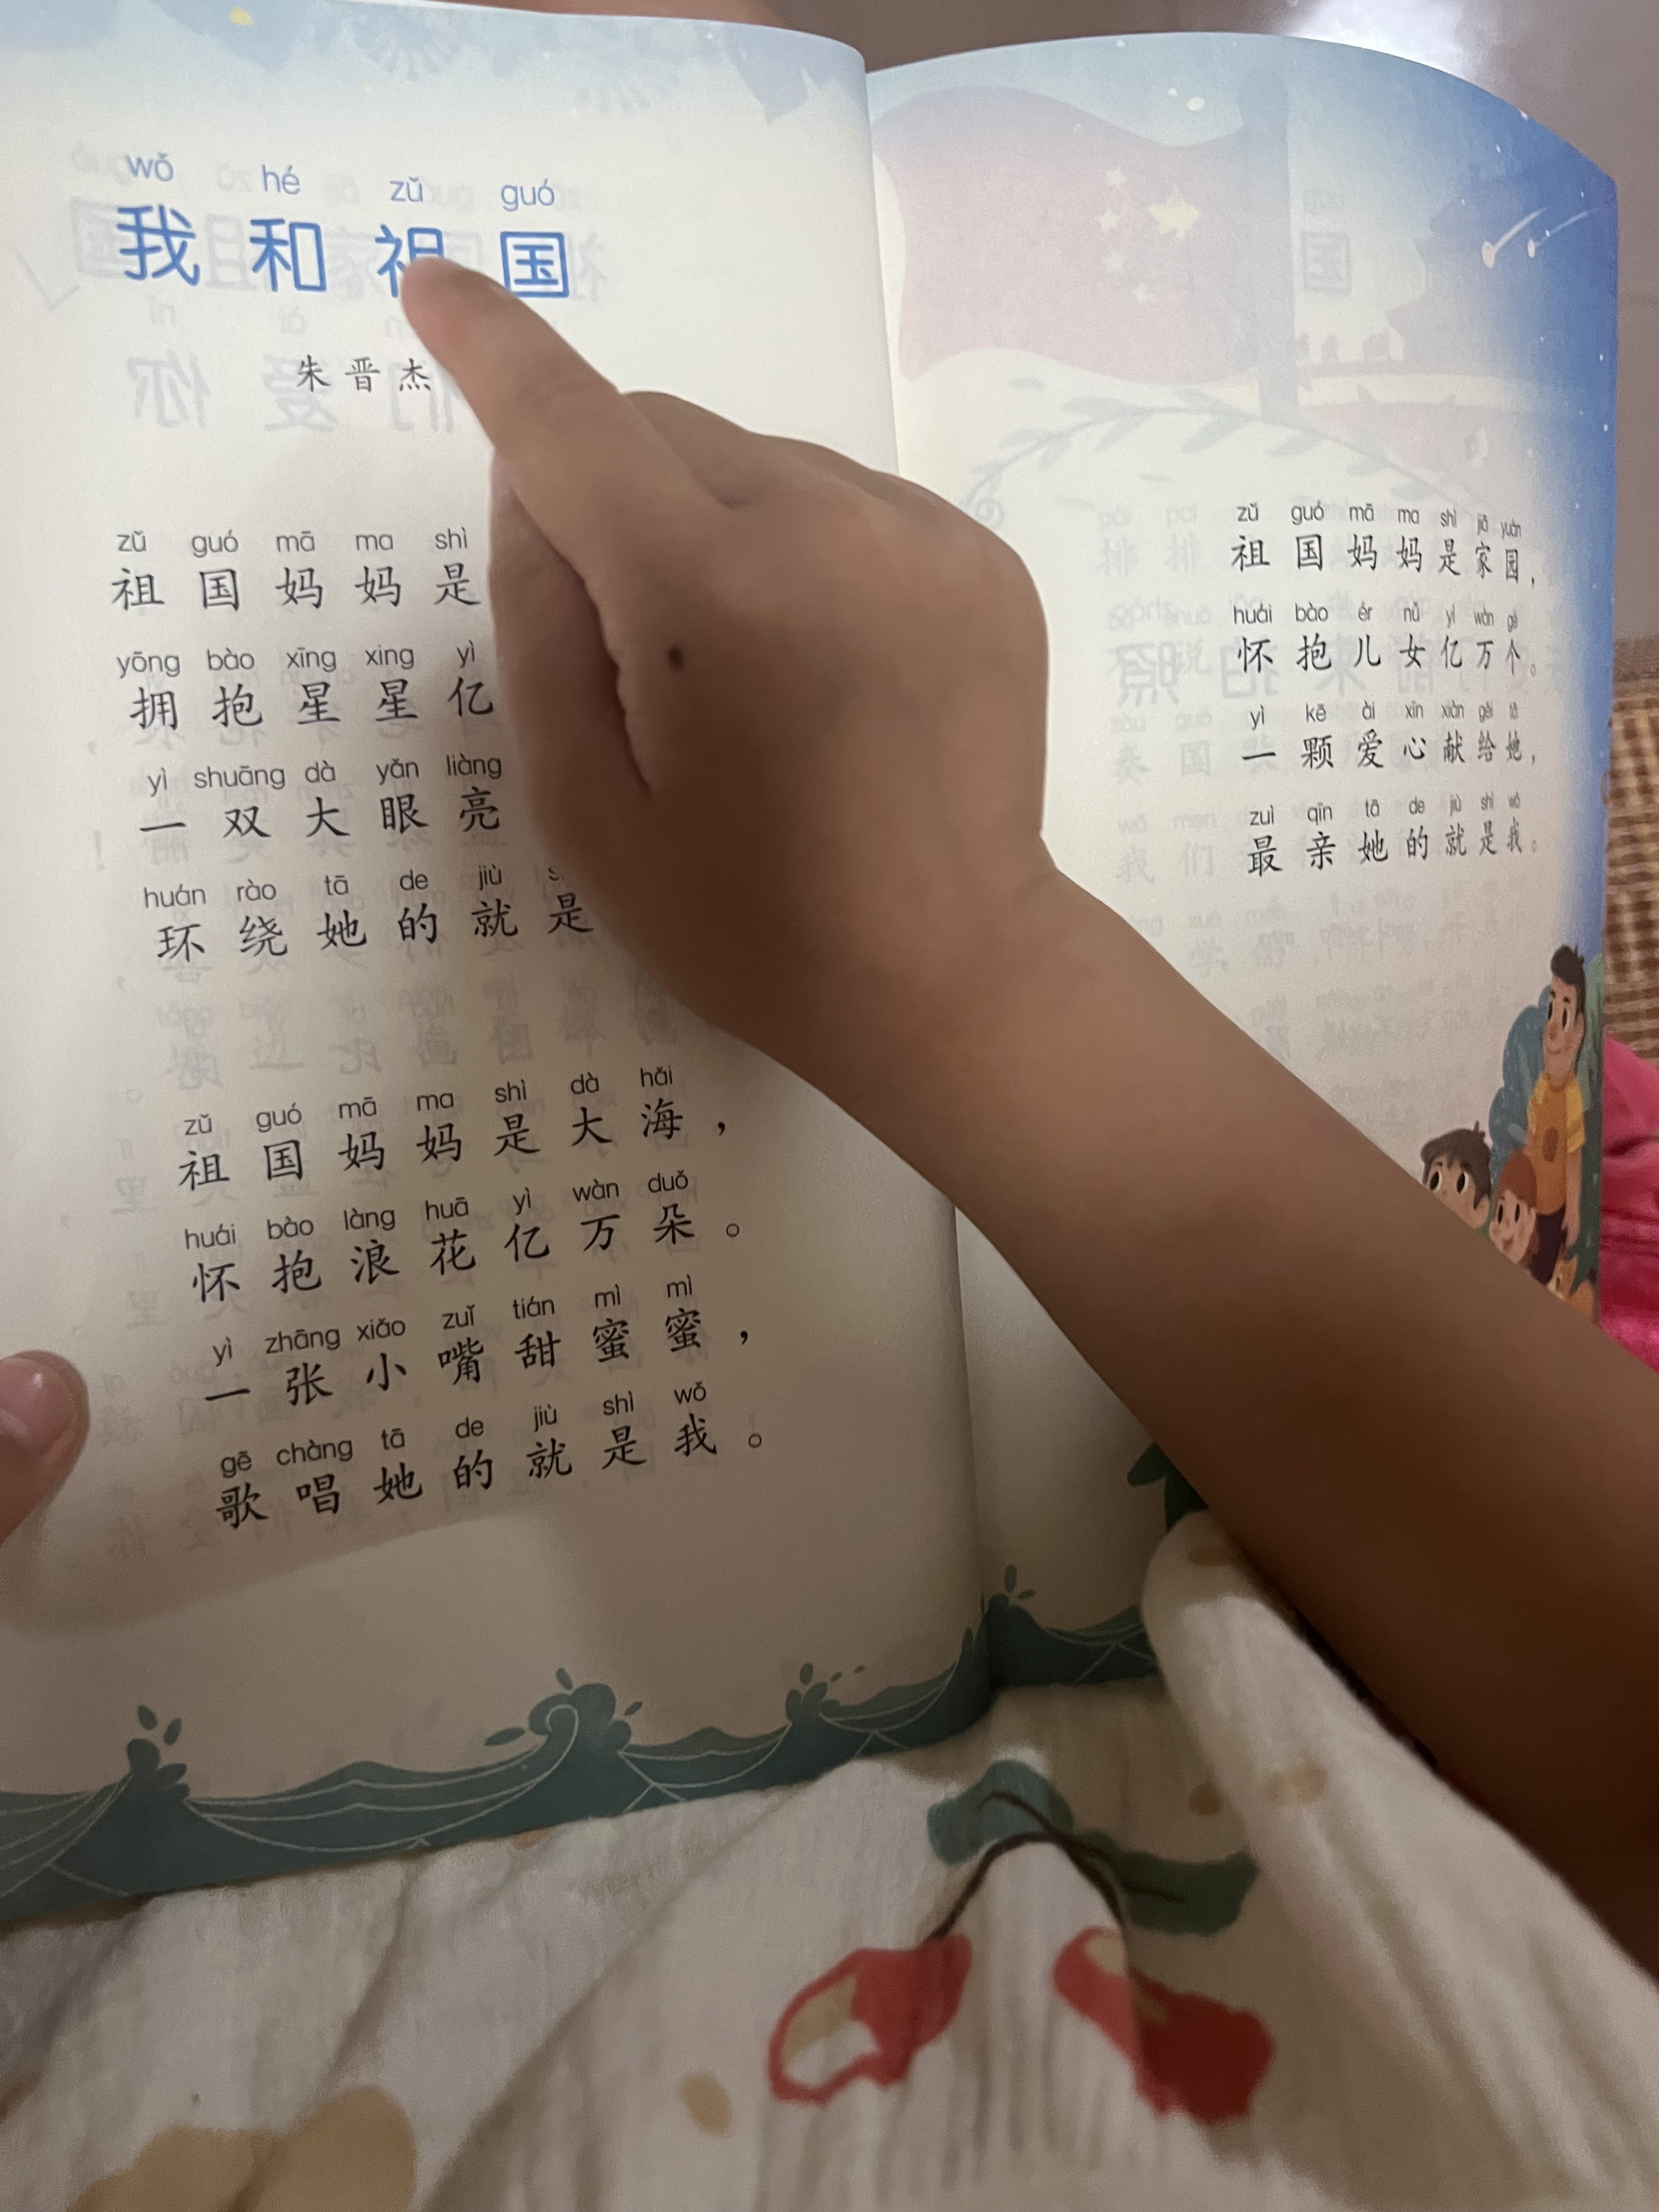 wǒ hé zǔ guó
我和祖国
朱晋杰
zǔ guó mā ma shì
祖国妈妈是
yōng bào xīng xing yì
拥抱星星亿
yì shuāng dà yǎn liàng
一双大眼亮
huán rào tā de jiù
环绕她的就是
zǔ guó mā ma shì dà hǎi
祖国妈妈是大海，
huái bào làng huā yì wàn duǒ
怀抱浪花亿万朵。
yì zhāng xiǎo zuǐ tián mì mì
一张小嘴甜蜜蜜，
gē chàng tā de jiù shì wǒ
歌唱她的就是我。
zǔ guó mā ma shì jiā yuán
祖国妈妈是家园，
huái bào ér nǚ yì wàn gè
怀抱儿女亿万个。
yì kē ài xīn xiàn gěi tā
一颗爱心献给她，
zuì qīn tā de jiù shì wǒ
最亲她的就是我。